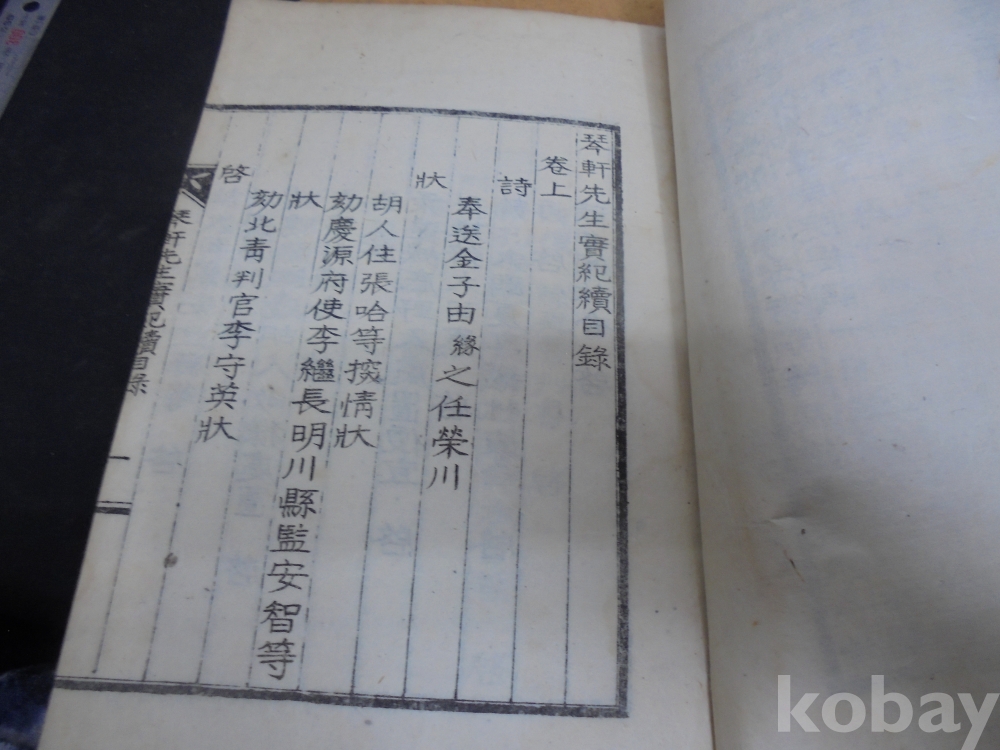 琴軒先生實紀續目錄
卷上
詩
奉送金子由緣之任榮川
狀
胡人住張哈等㨾情狀
劾慶源府使李繼長明川縣監安智等
狀
劾北靑判官李守英狀
啓
琴軒先生實紀續目錄
一
kobay